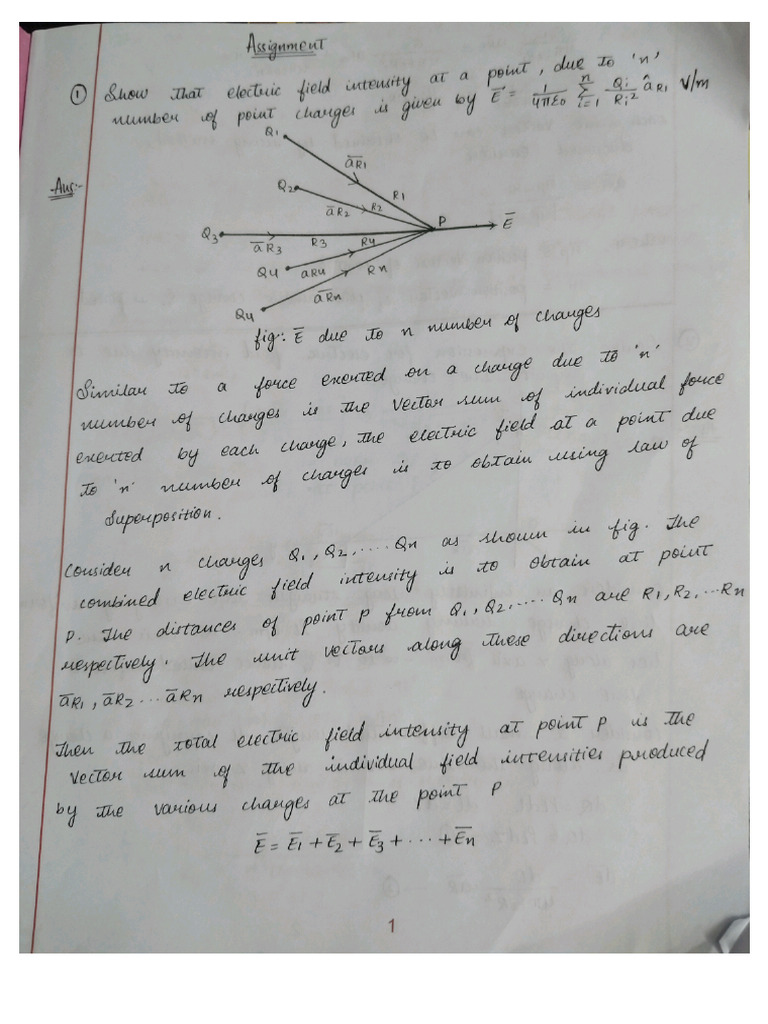 Assignment
① Show that electric field intensity at a point, due to 'n'
number of point charges is given by E̅ = 1/4πε0 Σ(i=1 to n) Qi/Ri² âR1 V/m
Ans:-
Q1
a̅R1
R1
Q2
a̅R2
R2
P
E̅
Q3
a̅R3
R3
R4
Q4
aR4
Rn
a̅Rn
Q4
fig:- E̅ due to n number of charges
Similar to a force exerted on a charge due to 'n'
number of charges is the vector sum of individual force
exerted by each charge, the electric field at a point due
to 'n' number of charges is to obtain using law of
Superposition.
Consider n charges Q1, Q2, ..... Qn as shown in fig. The
combined electric field intensity is to obtain at point
P. The distances of point P from Q1, Q2, ..... Qn are R1, R2, ...Rn
respectively. The unit vectors along these directions are
a̅R1, a̅R2 ... a̅Rn respectively.
Then the total electric field intensity at point P is the
vector sum of the individual field intensities produced
by the various charges at the point P
E̅ = E̅1 + E̅2 + E̅3 + ... + E̅n
1